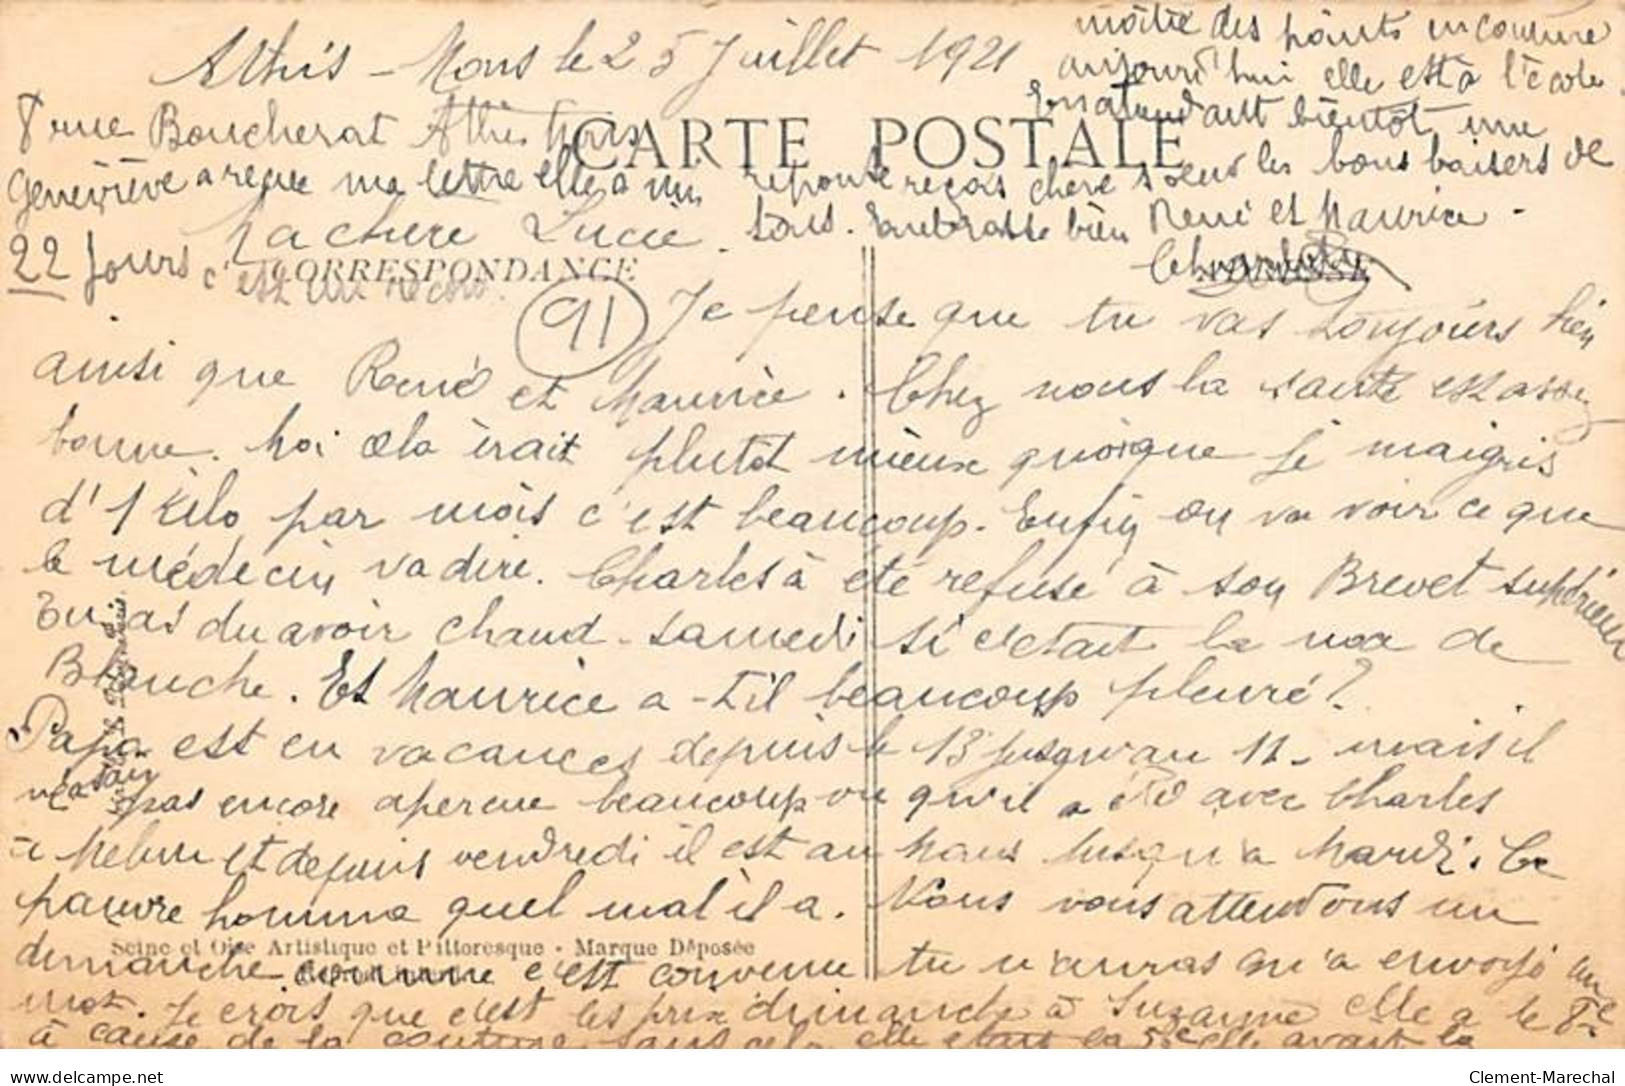 Athis-Mons le 25 Juillet 1921
8 rue Boucherat Athis Mons
CARTE POSTALE
Ma chere Lucie
CORRESPONDANCE
91
Je pense que tu vas toujours bien
ainsi que René et Maurice. Chez nous la santé est assez
bonne. Moi cela irait plutôt mieux quoique je maigris
d'1 kilo par mois c'est beaucoup. Enfin on va voir ce que
le médecin va dire. Charles à été refusé à son Brevet supérieur
Tu as du avoir chaud samedi si c'etait la noce de
Blanche. Et Maurice a-t-il beaucoup pleuré ?
Papa est en vacances depuis le 13 jusqu'au 11 mais il
s'en pas encore apercue beaucoup vu qu'il a été avec Charles
à Melun et depuis vendredi il est au Mans jusqu'a Mardi. Ce
pauvre homme quel mal il a. Nous vous attendons un
Seine et Oise Artistique et Pittoresque - Marque Déposée
dimanche comme c'est convenue tu n'auras qu'a envoyé un
mot. Je crois que c'est les prix dimanche à Suzanne elle a le 8e
à cause de la couture sans cela elle etait la 5e elle avait la
moitié des points en couture
aujourd'hui elle est à l'école
En attendant bientôt une
reponse reçois chere soeur les bons baisers de
tous. Embrasse bien René et Maurice -
Geneviève a reçue ma lettre elle a mis
22 jours c'est un record.
Clement-Marechal
delcampe.net